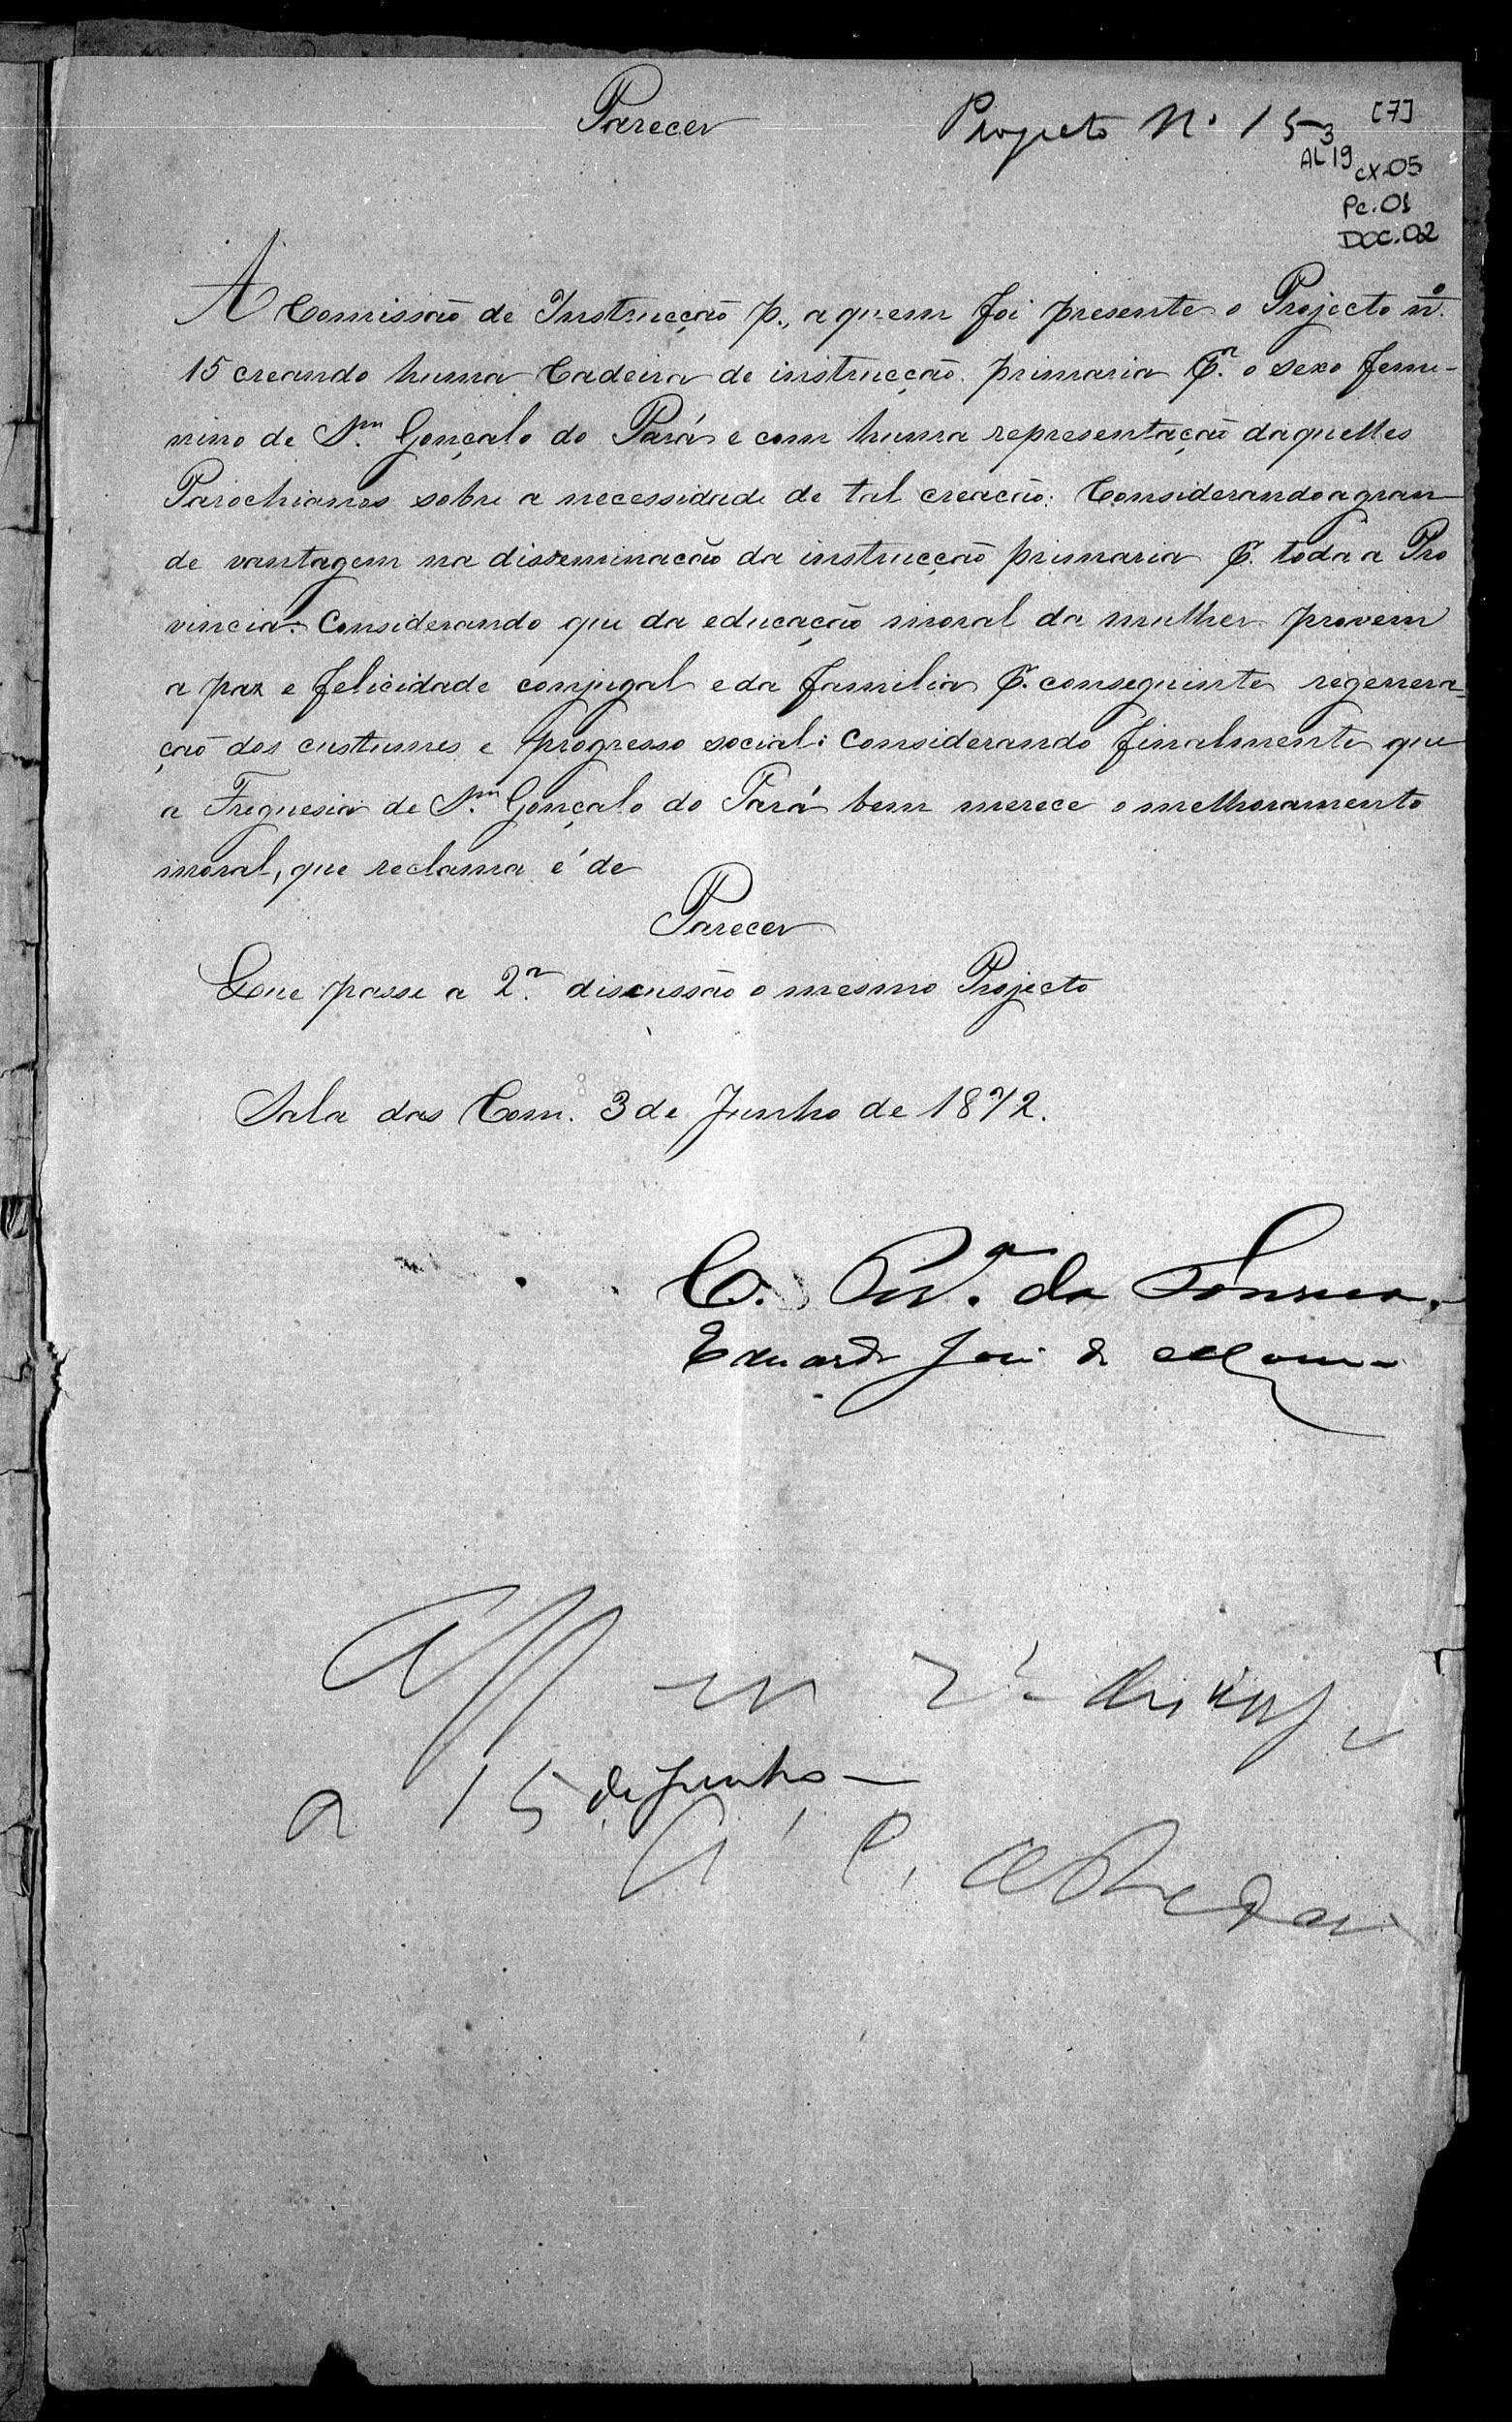 Parecer
Projecto N. 15
[7]
3
AL 19 CX.05
Pc.01
DOC.02
A Comissão de Instrucção p., a quem foi presente o Projecto nº.
15 creando huma Cadeira de instrucção primaria Pª. o sexo femi-
nino de Sm. Gonçalo do Pará e com huma representação daquelles
Parochianos sobre a necessidade de tal creacão: Considerando a gran
de vantagem na disseminacão da instrucção primaria P. toda a Pro
vincia: Considerando que da educação moral da mulher provem
a paz e felicidade conjugal e da familia P. conseguinte regenera-
ção dos custumes e progresso social: Considerando finalmente que
a Freguesia de Sm. Gonçalo do Pará bem merece o melhoramento
moral, que reclama é de
Parecer
Que passe a 2ª. discussão o mesmo Projecto
Sala das Com. 3 de Junho de 1872.
C. da Fonseca.
Eduardo José de Moura
App em 2ª
a 15 de Junho